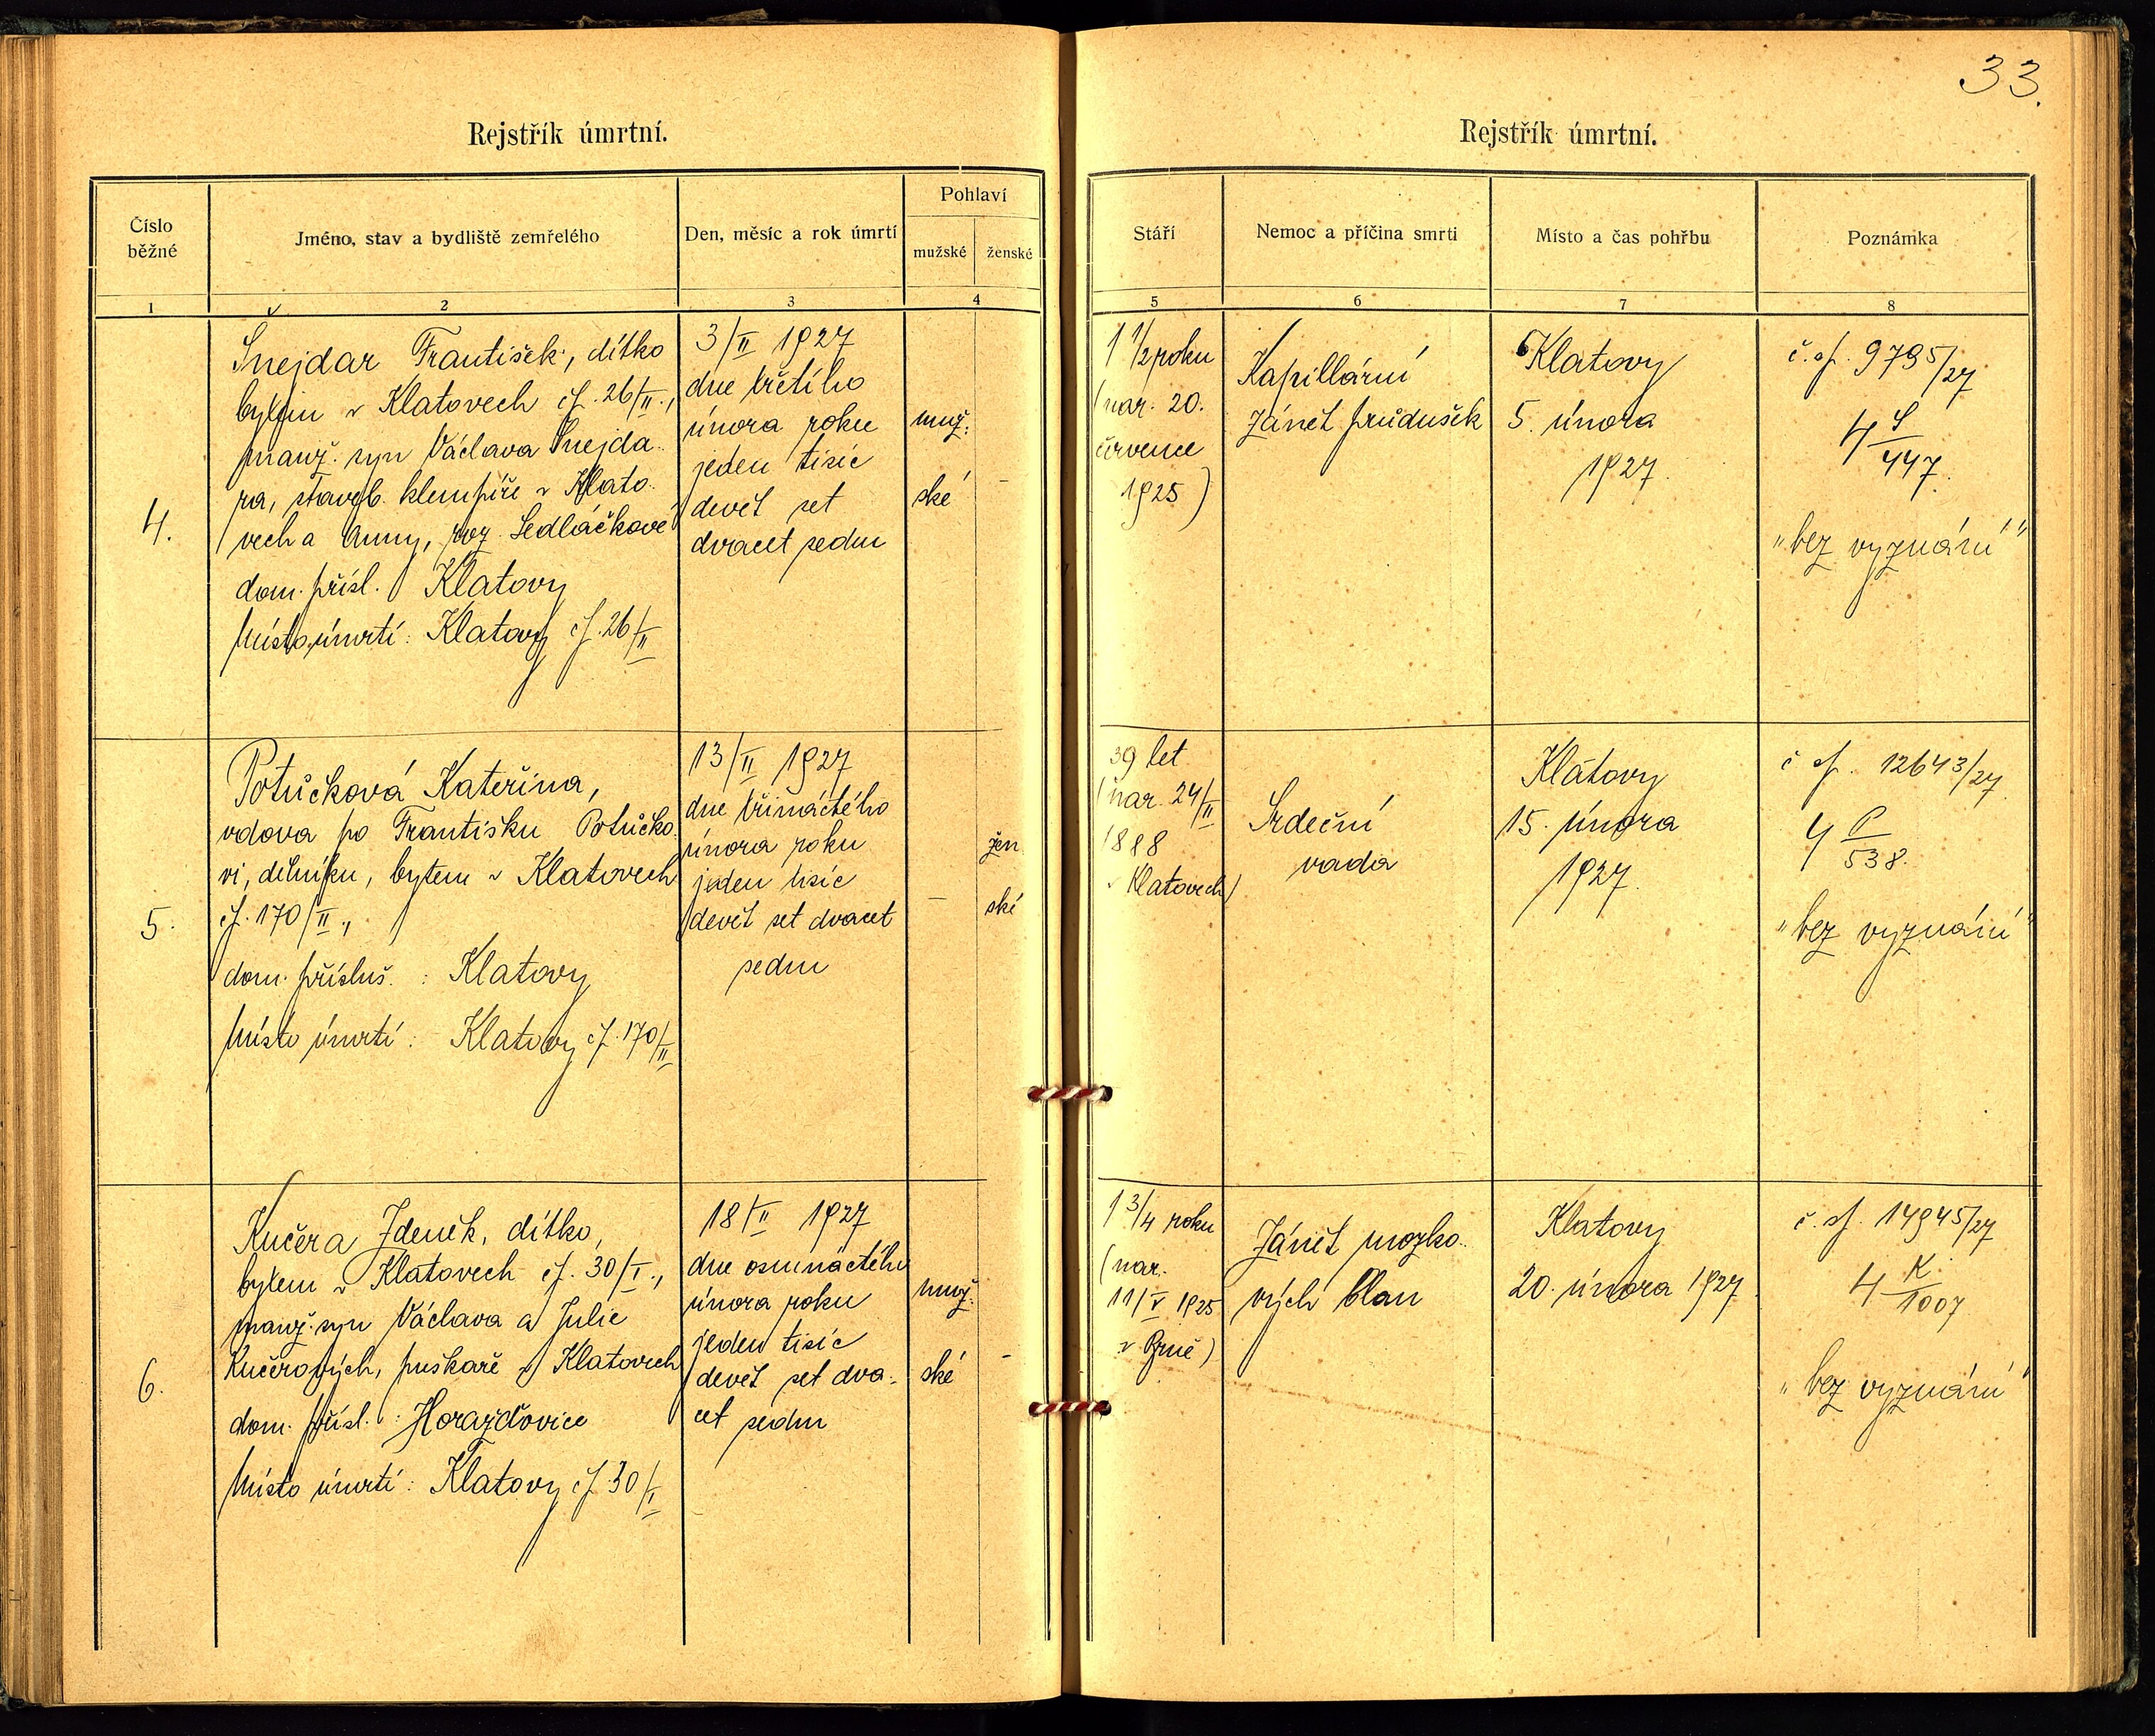 33.
Rejstřík úmrtní.
Číslo běžné
Jméno, stav a bydliště zemřelého
Den, měsíc a rok úmrtí
Pohlaví
mužské
ženské
1
2
3
4
4.
Šnejdar František, dítko
bytem v Klatovech čp. 26/II.,
manž. syn Václava Šnejda-
ra, staveb. klempíře v Klato-
vech a Anny, roz. Sedláčkové
dom. přísl. Klatovy
Místo úmrtí: Klatovy čp. 26/II
3/II 1927
dne třetího
února roku
jeden tisíc
devět set
dvacet sedm
muž-
ské
-
5.
Potůčková Kateřina,
vdova po Františku Potůčko-
vi, dělníku, bytem v Klatovech
čp. 170/II.,
dom. přísluš. : Klatovy
Místo úmrtí: Klatovy čp. 170/II
13/II 1927
dne třináctého
února roku
jeden tisíc
devět set dvacet
sedm
-
žen
ské
6.
Kučera Zdeněk, dítko,
bytem v Klatovech čp. 30/I.,
manž. syn Václava a Julie
Kučerových, puškaře v Klatovech
dom. přísl. : Horažďovice
Místo úmrtí: Klatovy čp. 30/I
18/II 1927
dne osmnáctého
února roku
jeden tisíc
devět set dva-
cet sedm
muž-
ské
-
Rejstřík úmrtní.
Stáří
Nemoc a příčina smrti
Místo a čas pohřbu
Poznámka
5
6
7
8
1 1/2 roku
(nar. 20.
července
1925)
Kapillární
zánět průdušek
Klatovy
5. února
1927.
č. sp. 9795/27
4 S/447.
"bez vyznání"
39 let
(nar. 24/II
1888
v Klatovech)
Srdeční
vada
Klatovy
15. února
1927.
č sp. 12643/27
4 P/538.
"bez vyznání"
1 3/4 roku
(nar.
11/V 1925
v Brně)
Zánět mozko-
vých blan
Klatovy
20. února 1927
č. sp. 14945/27
4 K/1007
"bez vyznání"